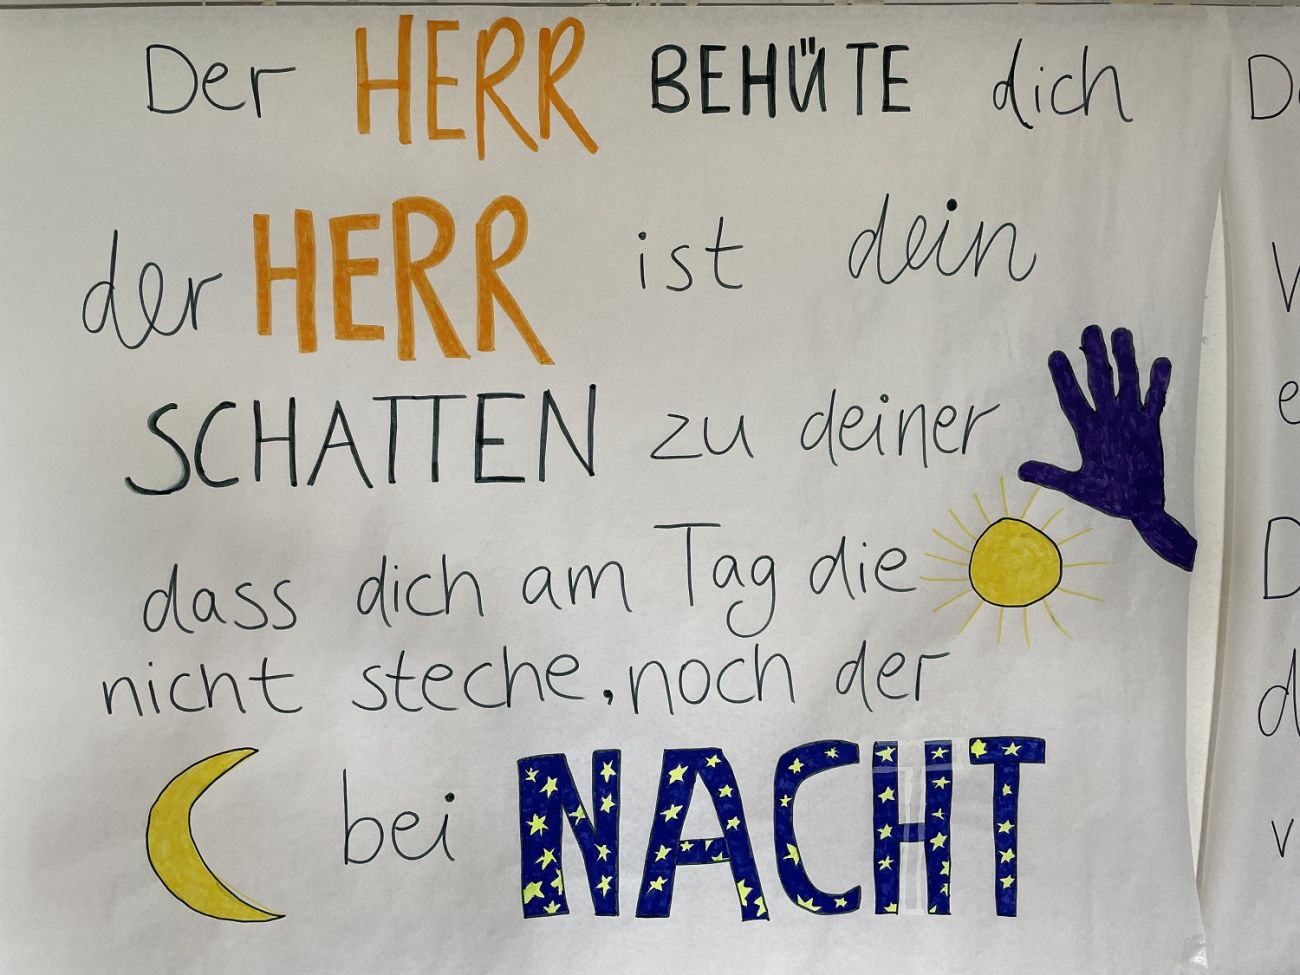 Der HERR BEHÜTE dich
der HERR ist dein
SCHATTEN zu deiner
dass dich am Tag die
nicht steche, noch der
bei NACHT